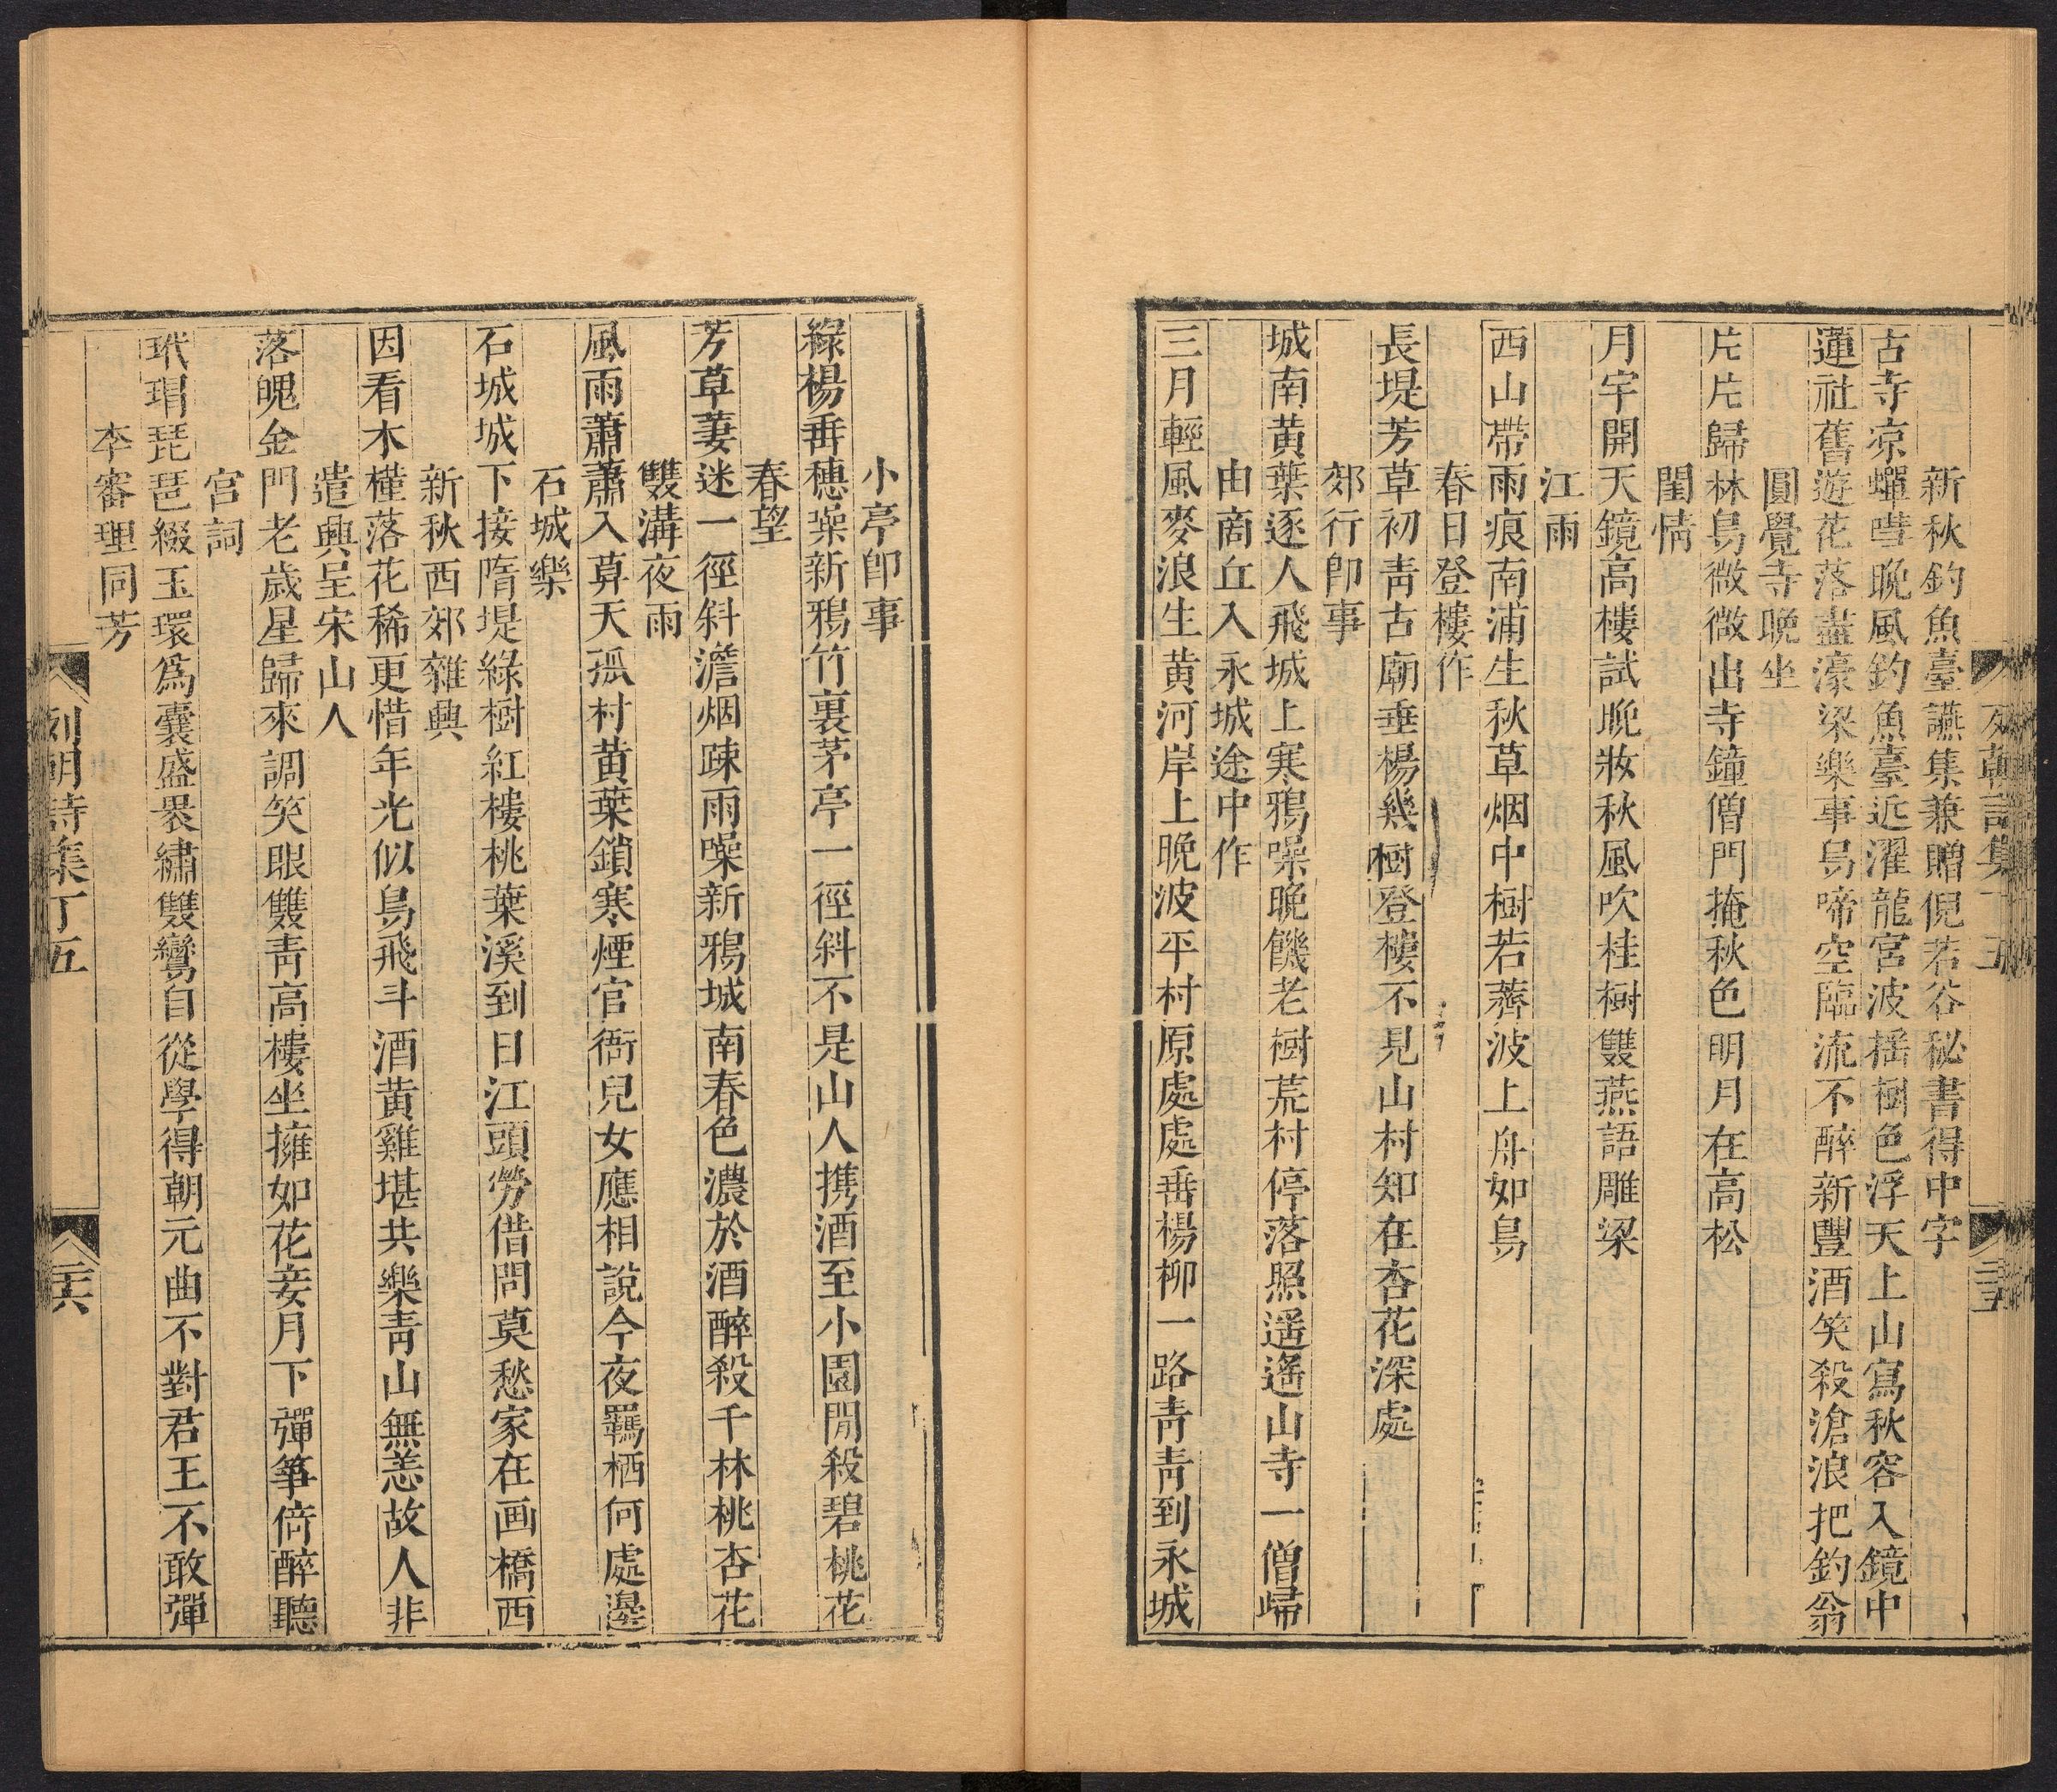 列朝詩集丁五
三五
新秋釣魚臺讌集兼贈倪若谷秘書得中字
古寺凉蟬噰晚風釣魚臺近濯龍宮波揺樹色浮天上山寫秋容入鏡中
蓮社舊遊花落盡濠梁樂事鳥啼空臨流不醉新豐酒笑殺滄浪把釣翁
圓覺寺晚坐
片片歸林鳥微微出寺鐘僧門掩秋色明月在高松
閨情
月宇開天鏡高樓試晚妝秋風吹桂樹雙燕語雕梁
江雨
西山帶雨痕南浦生秋草烟中樹若薺波上舟如鳥
春日登樓作
長堤芳草初靑古廟垂楊幾樹登樓不見山村知在杏花深處
郊行卽事
城南黄葉逐人飛城上寒鴉噪晚饑老樹荒村停落照遥遙山寺一僧歸
由商丘入永城途中作
三月輕風麥浪生黄河岸上晚波平村原處處垂楊柳一路靑靑到永城
小亭卽事
綠楊垂穗葉新鴉竹裏茅亭一徑斜不是山人携酒至小園閒殺碧桃花
春望
芳草萋迷一徑斜澹烟疎雨噪新鴉城南春色濃於酒醉殺千林桃杏花
雙溝夜雨
風雨蕭蕭入莫天孤村黄葉鎖寒煙官衙兒女應相說今夜羈栖何處邊
石城樂
石城城下接隋堤綠樹紅樓桃葉溪到日江頭勞借問莫愁家在画橋西
新秋西郊雜興
因看木槿落花稀更惜年光似鳥飛斗酒黄雞堪共樂靑山無恙故人非
遣興呈宋山人
落魄金門老歲星歸來調笑眼雙靑高樓坐擁如花妾月下彈箏倚醉聽
宮詞
玳瑁琵琶綴玉環爲囊盛裠繡雙鸞自從學得朝元曲不對君王不敢彈
李審理同芳
列朝詩集丁五
三六